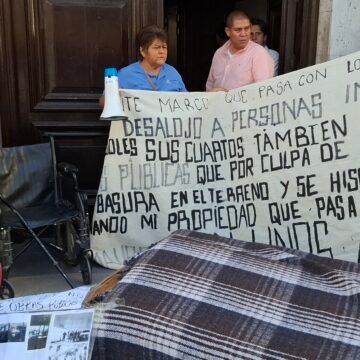 TE MARCO QUE PASA CON LO
DESALOJO A PERSONAS IN
OLES SUS CUARTOS TAMBIEN
S PUBLICAS QUE POR CULPA DE
BASURA EN EL TERRENO Y SE HIS
ANDO MI PROPIEDAD QUE PASA
UNOS
E OBRAS PUBLICAS